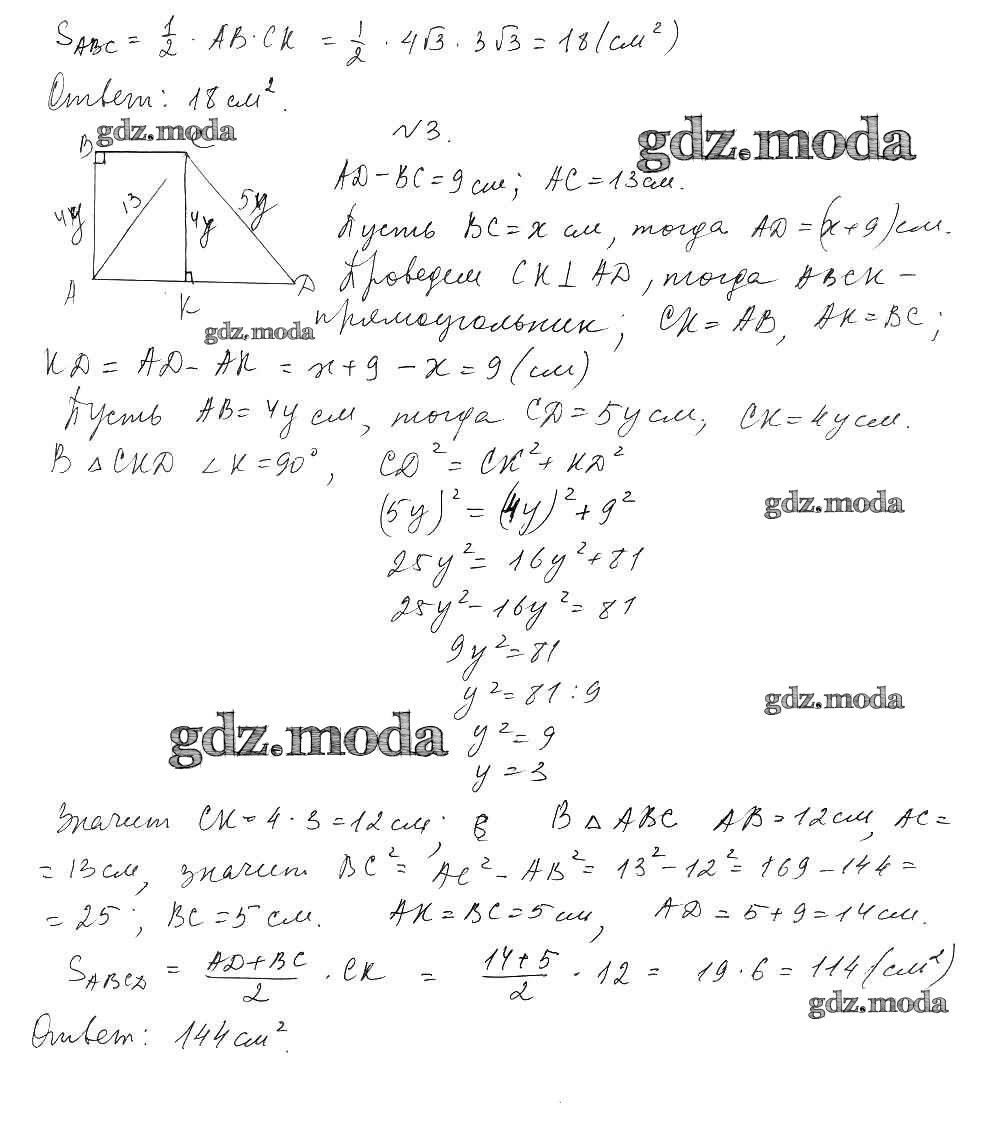 S_ABC = 1/2 · AB · CK = 1/2 · 4√3 · 3√3 = 18 (см²)
Ответ: 18 см².
gdz.moda
№3.
gdz.moda
B
4y 13 4y 5y
A K D
AD - BC = 9 см; AC = 13 см.
Пусть BC = x см, тогда AD = (x+9) см.
Проведем CK ⊥ AD, тогда ABCK -
gdz.moda
прямоугольник; CK = AB, AK = BC;
KD = AD - AK = x + 9 - x = 9 (см)
Пусть AB = 4y см, тогда CD = 5y см, CK = 4y см.
В △ CKD ∠K = 90°, CD² = CK² + KD²
(5y)² = (4y)² + 9²
gdz.moda
25y² = 16y² + 81
25y² - 16y² = 81
9y² = 81
y² = 81 : 9
gdz.moda
gdz.moda
y² = 9
y = 3
Значит CK = 4 · 3 = 12 см; В △ ABC AB = 12 см, AC =
= 13 см, значит BC² = AC² - AB² = 13² - 12² = 169 - 144 =
= 25; BC = 5 см. AK = BC = 5 см, AD = 5 + 9 = 14 см.
S_ABCD = (AD + BC)/2 · CK = (14 + 5)/2 · 12 = 19 · 6 = 114 (см²)
gdz.moda
Ответ: 144 см².